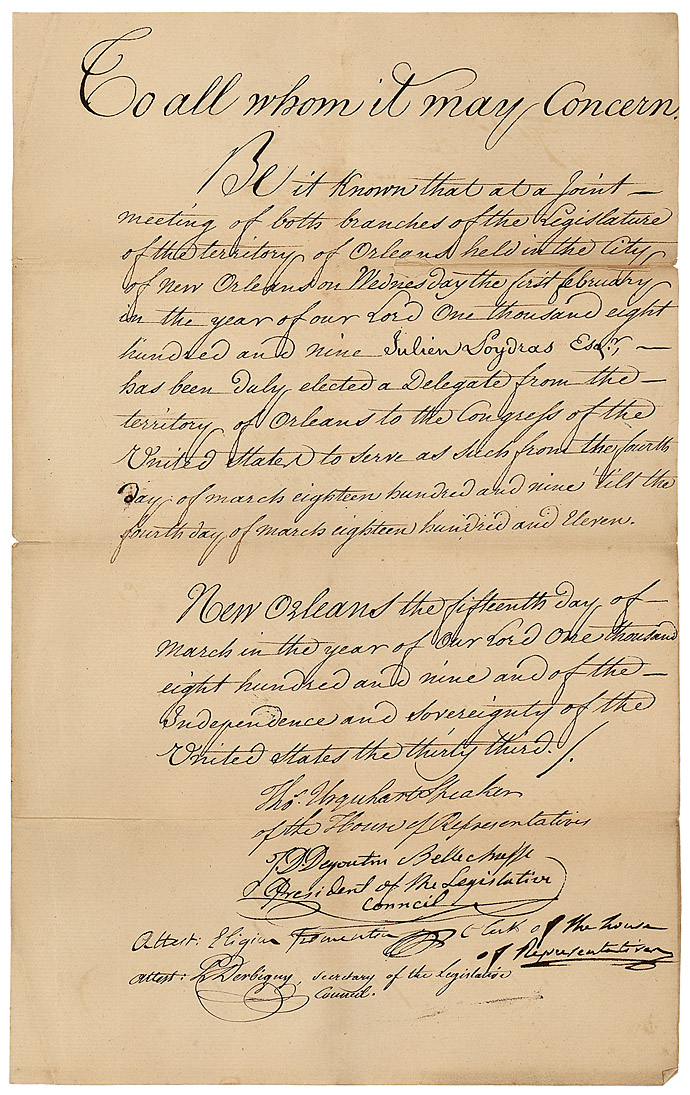 To all whom it may Concern.
Be it Known that at a Joint —
meeting of both branches of the Legislature
of the territory of Orleans held in the City
of New Orleans on Wednesday the first february
in the year of our Lord One thousand eight
hundred and nine Julien Poydras Esqr., —
has been duly elected a Delegate from the —
territory of Orleans to the Congress of the
United States to serve as such from the fourth
day of march eighteen hundred and nine 'till the
fourth day of march eighteen hundred and Eleven.
New Orleans the fifteenth day of
March in the year of Our Lord One thousand
eight hundred and nine and of the —
Independence and sovereignty of the
United States the thirty third. /.
Thos. Urquhart Speaker
of the House of Representatives
J. D. Degoutin Bellechasse
President of the Legislative
Council
Attest: Eligius Fromentin Clerk of the house
of Representatives
Attest: P. Derbigny, secretary of the Legislative
Council.